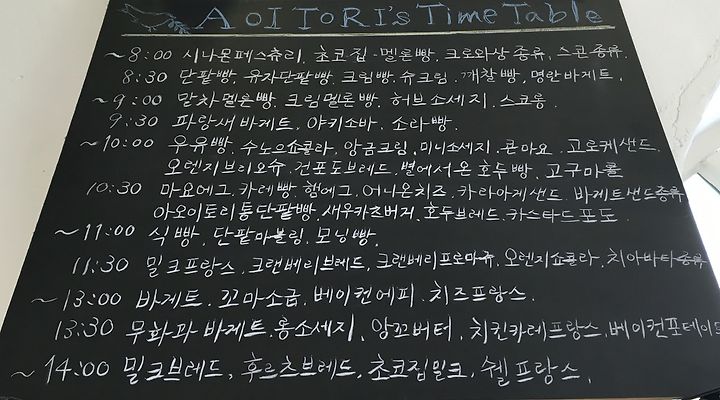 AOITORI's Time Table
~8:00 시나몬페스츄리. 초코칩·멜론빵. 크로와상종류. 스콘종류.
8:30 단팥빵. 유자단팥빵. 크림빵. 슈크림. 깨찰빵. 명란바게트.
~9:00 말차멜론빵. 크림멜론빵. 허브소세지. 스코롱.
9:30 파랑새바게트. 야키소바. 소라빵.
~10:00 우유빵. 수노으쇼콜라. 앙금크림. 미니소세지. 콘마요. 고로케샌드.
오렌지브리오슈. 건포도브레드. 별에서온호두빵. 고구마롤
10:30 마요에그. 카레빵. 햄에그. 어니온치즈. 카라아게샌드. 바게트샌드종류
아오이토리통단팥빵. 새우카츠버거. 호두브레드. 카스타드포도.
~11:00 식빵. 단팥마블링. 모닝빵.
11:30 밀크프랑스. 크랜베리브레드. 크랜베리프로마쥬. 오렌지쇼콜라. 치아바타종류
~13:00 바게트. 꼬마소금. 베이컨에피. 치즈프랑스.
13:30 무화과바게트. 롱소세지. 앙꼬버터. 치킨카레프랑스. 베이컨포테이토
~14:00 밀크브레드. 후르츠브레드. 초코칩밀크. 쉘프랑스.